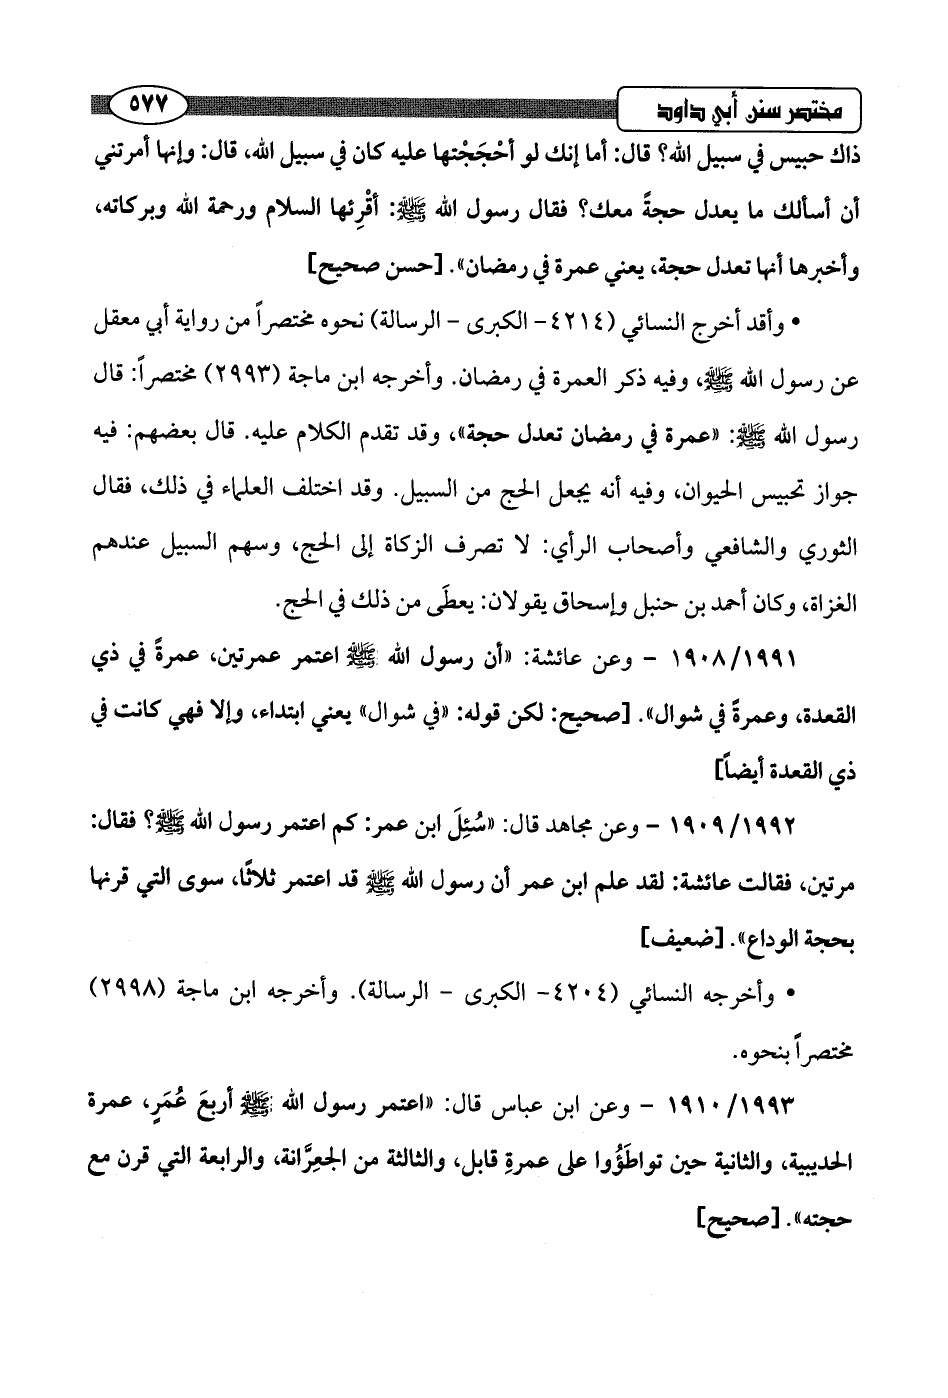 مختصر سنن أبي داود
٥٧٧
ذاك حبيس في سبيل الله؟ قال: أما إنك لو أحْجَجْتها عليه كان في سبيل الله، قال: وإنها أمرتني
أن أسألك ما يعدل حجةً معك؟ فقال رسول الله ﷺ: أقْرِئها السلام ورحمة الله وبركاته،
وأخبرها أنها تعدل حجة، يعني عمرة في رمضان». [حسن صحيح]
• وأقد أخرج النسائي (٤٢١٤- الكبرى - الرسالة) نحوه مختصراً من رواية أبي معقل
عن رسول الله ﷺ، وفيه ذكر العمرة في رمضان. وأخرجه ابن ماجة (٢٩٩٣) مختصراً: قال
رسول الله ﷺ: «عمرة في رمضان تعدل حجة»، وقد تقدم الكلام عليه. قال بعضهم: فيه
جواز تحبيس الحيوان، وفيه أنه يجعل الحج من السبيل. وقد اختلف العلماء في ذلك، فقال
الثوري والشافعي وأصحاب الرأي: لا تصرف الزكاة إلى الحج، وسهم السبيل عندهم
الغزاة، وكان أحمد بن حنبل وإسحاق يقولان: يعطَى من ذلك في الحج.
١٩٠٨/١٩٩١ - وعن عائشة: «أن رسول الله ﷺ اعتمر عمرتين، عمرةً في ذي
القعدة، وعمرةً في شوال». [صحيح: لكن قوله: «في شوال» يعني ابتداء، وإلا فهي كانت في
ذي القعدة أيضاً]
١٩٠٩/١٩٩٢ - وعن مجاهد قال: «سُئِلَ ابن عمر: كم اعتمر رسول الله ﷺ؟ فقال:
مرتين، فقالت عائشة: لقد علم ابن عمر أن رسول الله ﷺ قد اعتمر ثلاثًا، سوى التي قرنها
بحجة الوداع». [ضعيف]
• وأخرجه النسائي (٤٢٠٤- الكبرى - الرسالة). وأخرجه ابن ماجة (٢٩٩٨)
مختصراً بنحوه.
١٩١٠/١٩٩٣ - وعن ابن عباس قال: «اعتمر رسول الله ﷺ أربعَ عُمَرٍ، عمرة
الحديبية، والثانية حين تواطَؤُوا على عمرةِ قابل، والثالثة من الجعِرَّانة، والرابعة التي قرن مع
حجته». [صحيح]